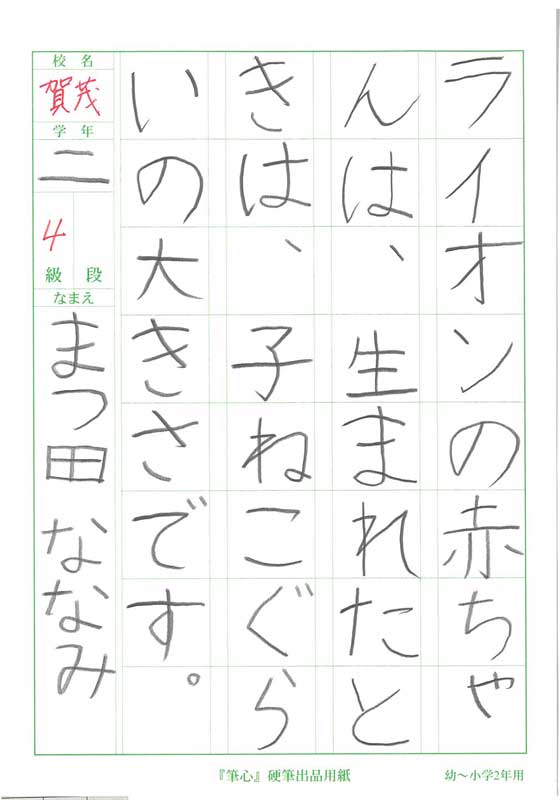 ライオンの赤ちゃ
んは、生まれたと
きは、子ねこぐら
いの大きさです。
校名
賀茂
学年
二
4
級段
なまえ
まつ田ななみ
『筆心』硬筆出品用紙
幼～小学2年用